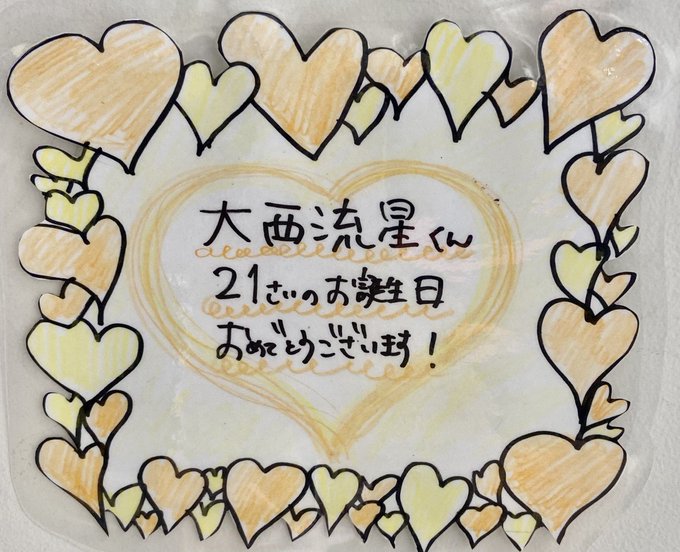 大西流星くん
21さいのお誕生日
おめでとうございます!